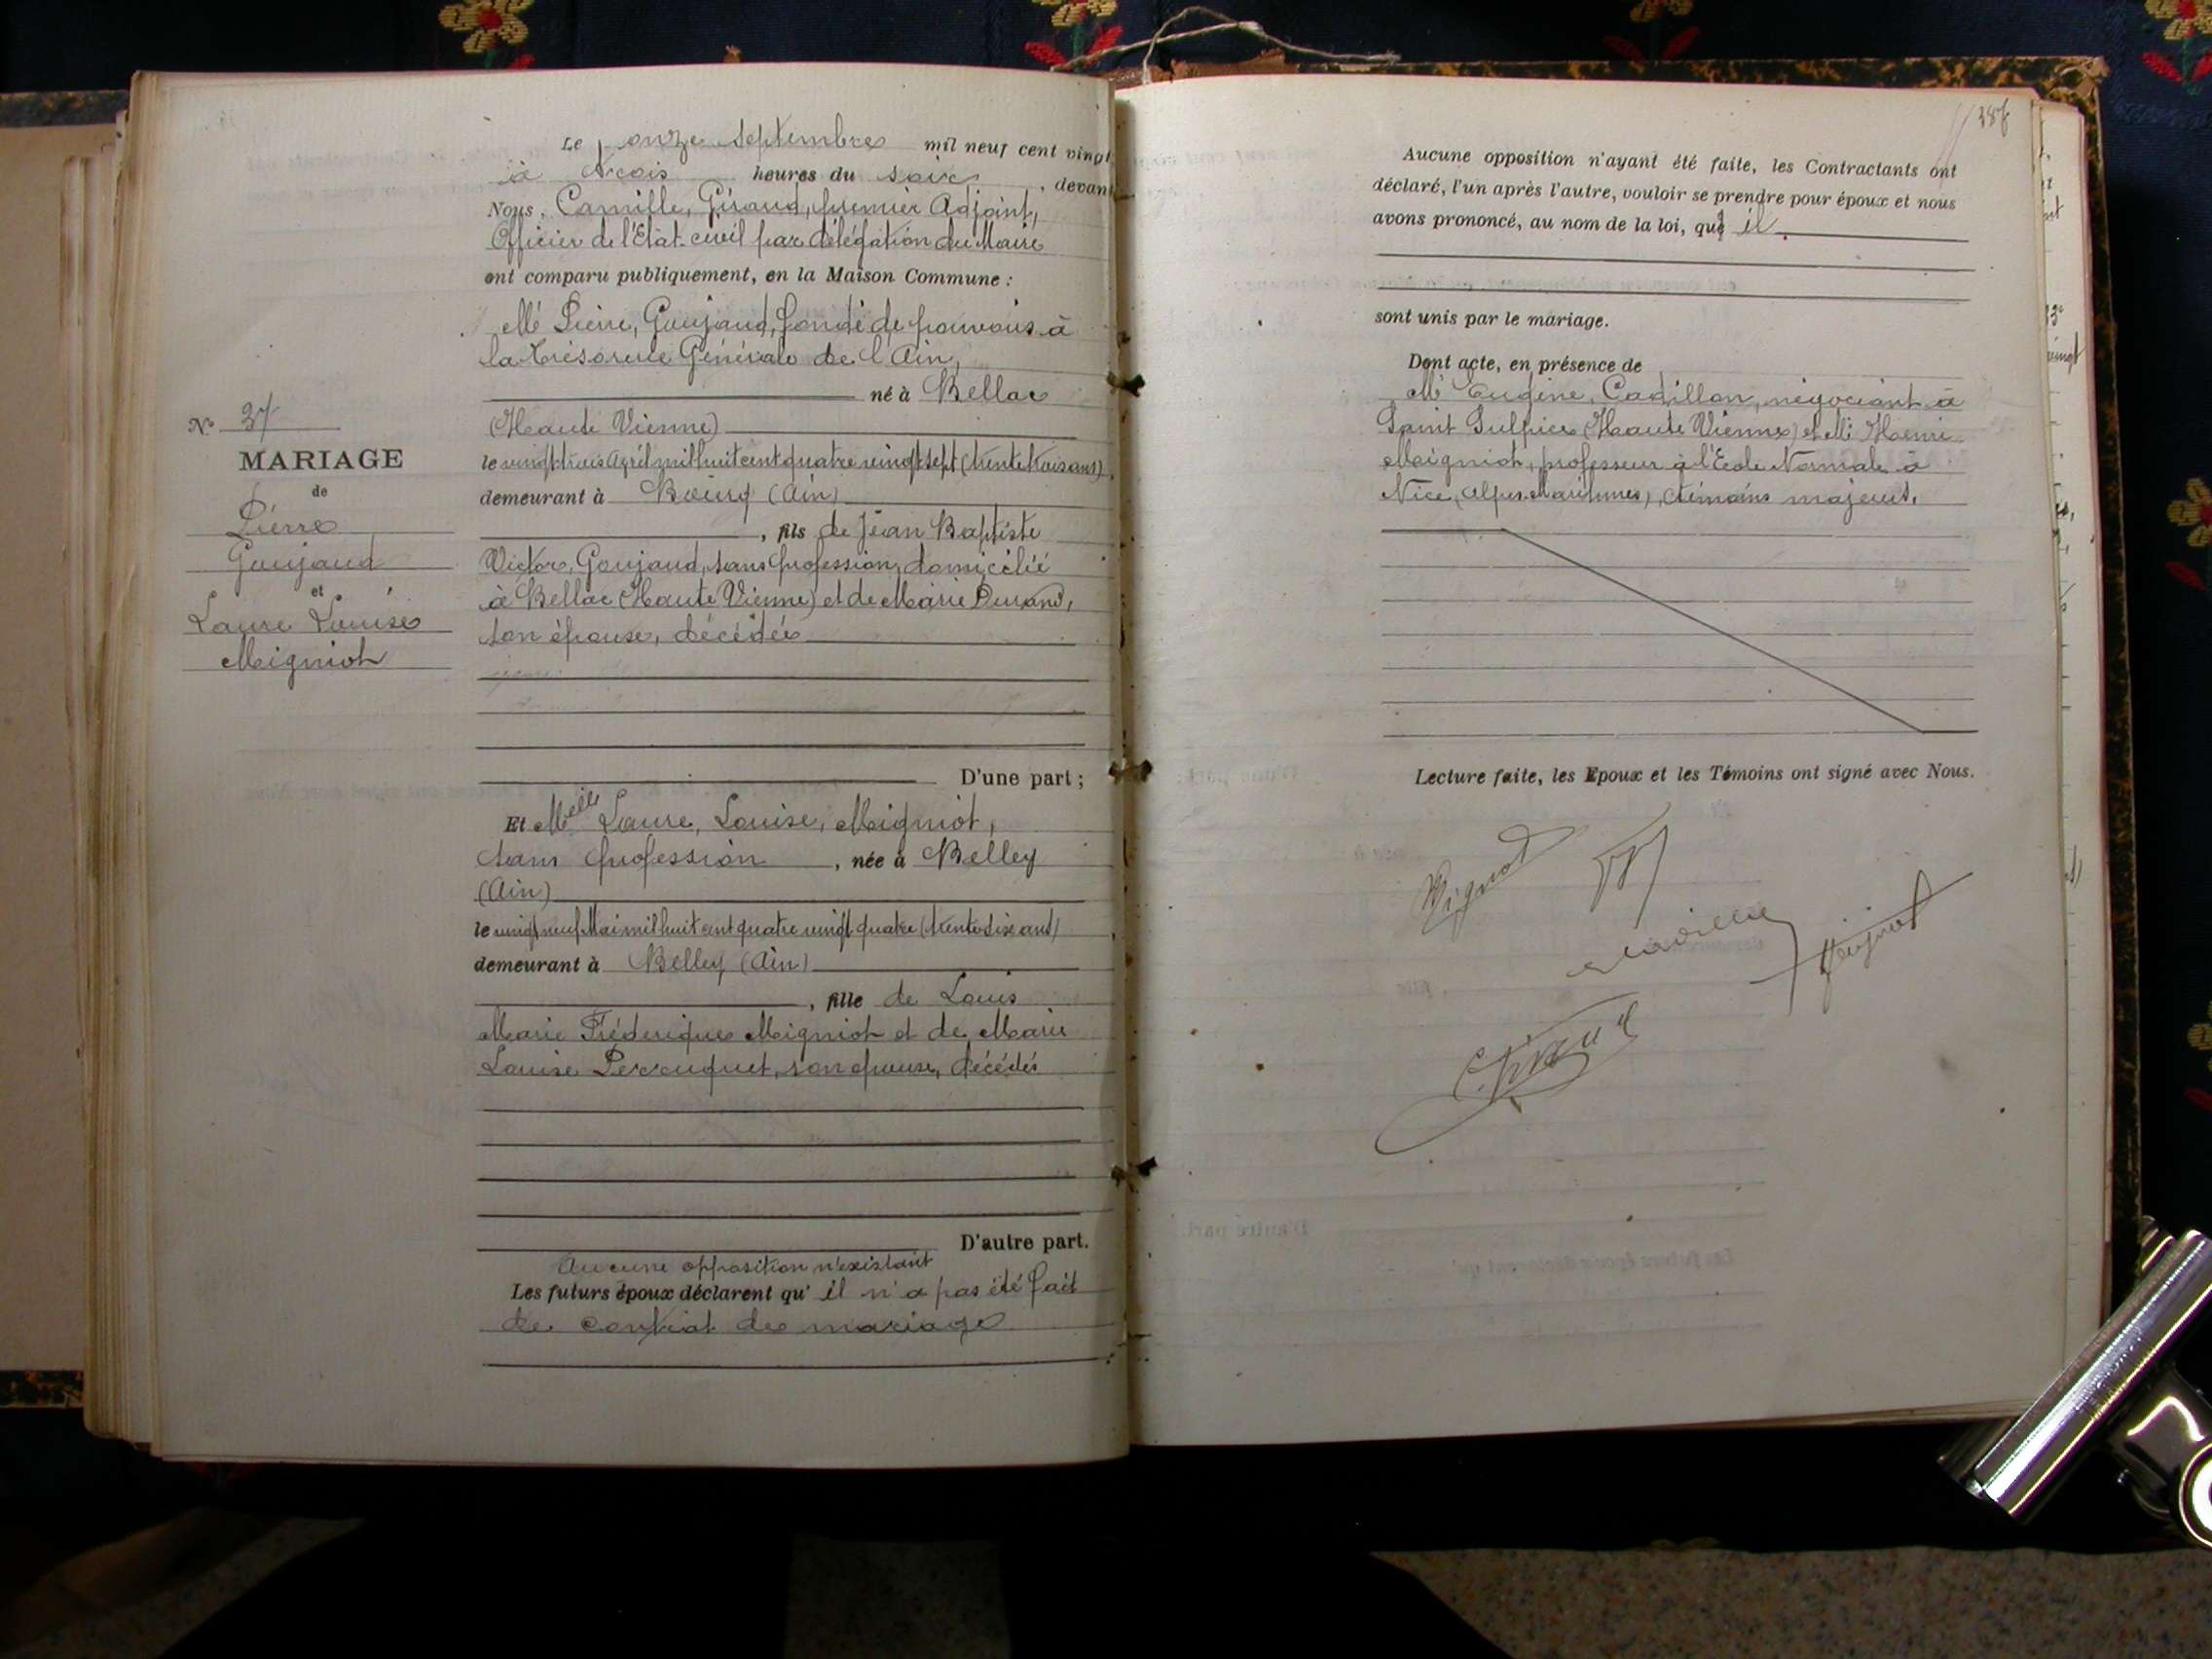 N° 37
MARIAGE
de
Pierre
Goujaud
et
Laure Louise
Meigniot
Le onze Septembre mil neuf cent vingt
à trois heures du soir, devant
Nous, Camille, Giraud, premier Adjoint,
Officier de l'Etat-civil par délégation du Maire
ont comparu publiquement, en la Maison Commune :
Mr Pierre, Goujaud, fondé de pouvoirs à
la Trésorerie Générale de l'Ain,
né à Bellac
(Haute Vienne)
le vingt trois Avril mil huit cent quatre vingt sept (trente trois ans),
demeurant à Bourg (Ain)
, fils de Jean Baptiste
Victor, Goujaud, sans profession, domicilié
à Bellac (Haute Vienne) et de Marie Durand,
son épouse, décédée
D'une part ;
Et Melle Laure, Louise, Meigniot,
sans profession, née à Belley
(Ain)
le vingt neuf Mai mil huit cent quatre vingt quatre (trente six ans)
demeurant à Belley (Ain)
, fille de Louis
Marie Fréderique Meigniot et de Marie
Louise Perrouquet, son épouse, décédés
D'autre part.
Aucune opposition n'existant
Les futurs époux déclarent qu' il n'a pas été fait
de contrat de mariage
Aucune opposition n'ayant été faite, les Contractants ont
déclaré, l'un après l'autre, vouloir se prendre pour époux et nous
avons prononcé, au nom de la loi, qu'il
sont unis par le mariage.
Dont acte, en présence de
Mr Eugène, Cadillon, négociant à
Saint Sulpice (Haute Vienne) et Mr Henri
Meigniot, professeur à l'Ecole Normale à
Nice (Alpes-Maritimes), témoins majeurs.
Lecture faite, les Epoux et les Témoins ont signé avec Nous.
C. Giraud